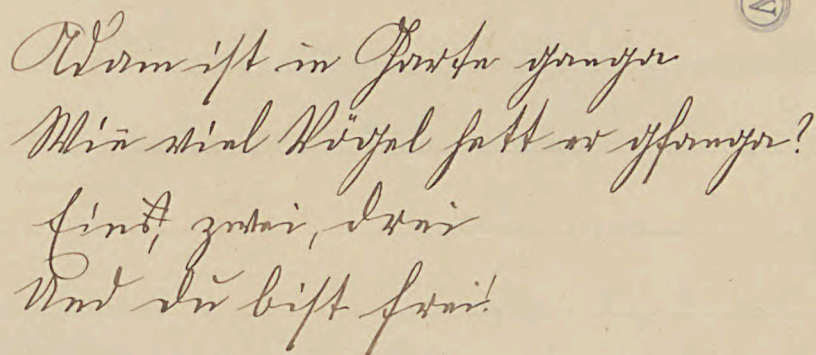 Adam ist in Garte ganga
Wie viel Vögel hett er gfanga?
Eins, zwei, drei
Und du bist frei!